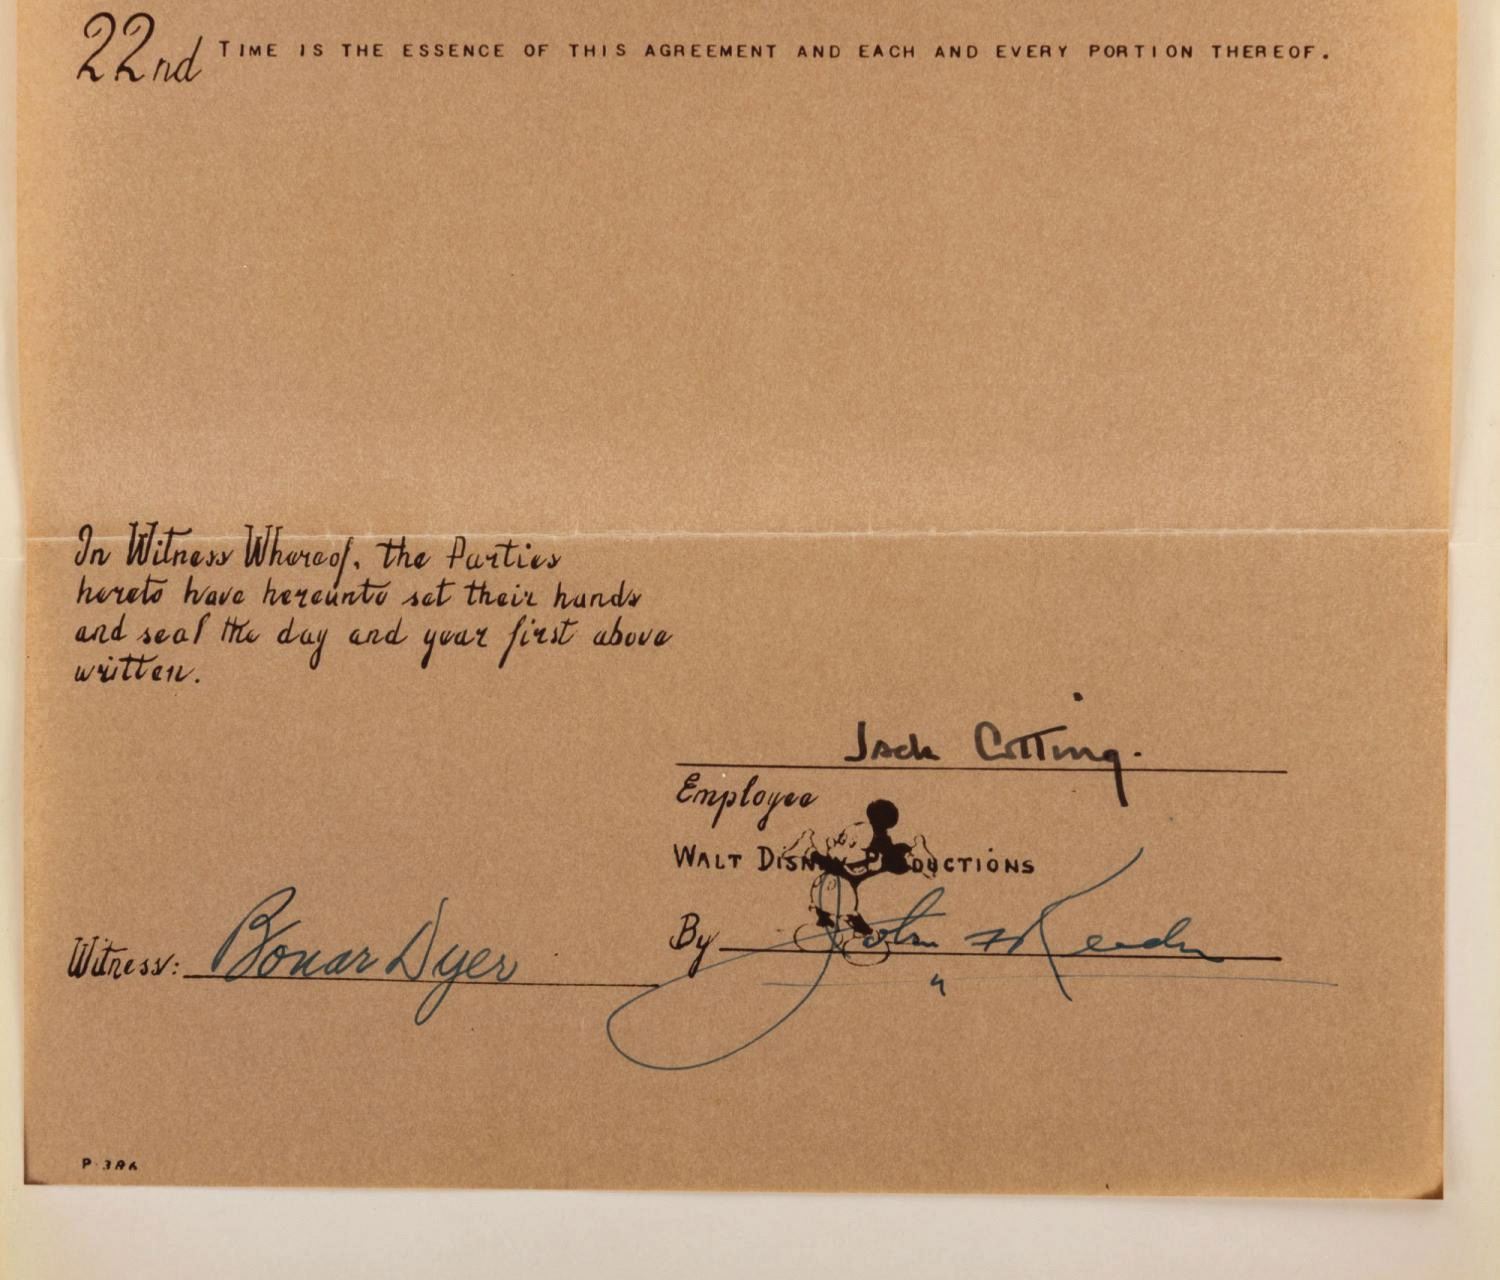 22nd TIME IS THE ESSENCE OF THIS AGREEMENT AND EACH AND EVERY PORTION THEREOF.
In Witness Whereof, the Parties
hereto have hereunto set their hands
and seal the day and year first above
written.
Jack Cutting.
Employee
WALT DISNEY PRODUCTIONS
By John F Reeder
Witness: Bonar Dyer